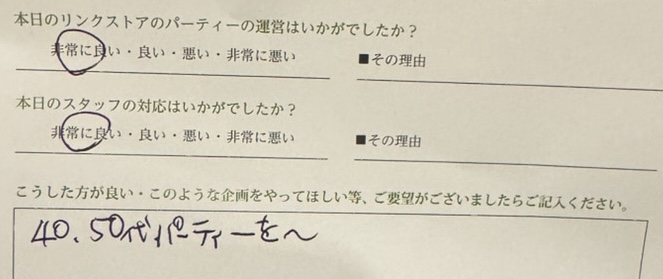 本日のリンクストアのパーティーの運営はいかがでしたか？
非常に良い・良い・悪い・非常に悪い
■その理由
本日のスタッフの対応はいかがでしたか？
非常に良い・良い・悪い・非常に悪い
■その理由
こうした方が良い・このような企画をやってほしい等、ご要望がございましたらご記入ください。
40.50代パーティーを〜